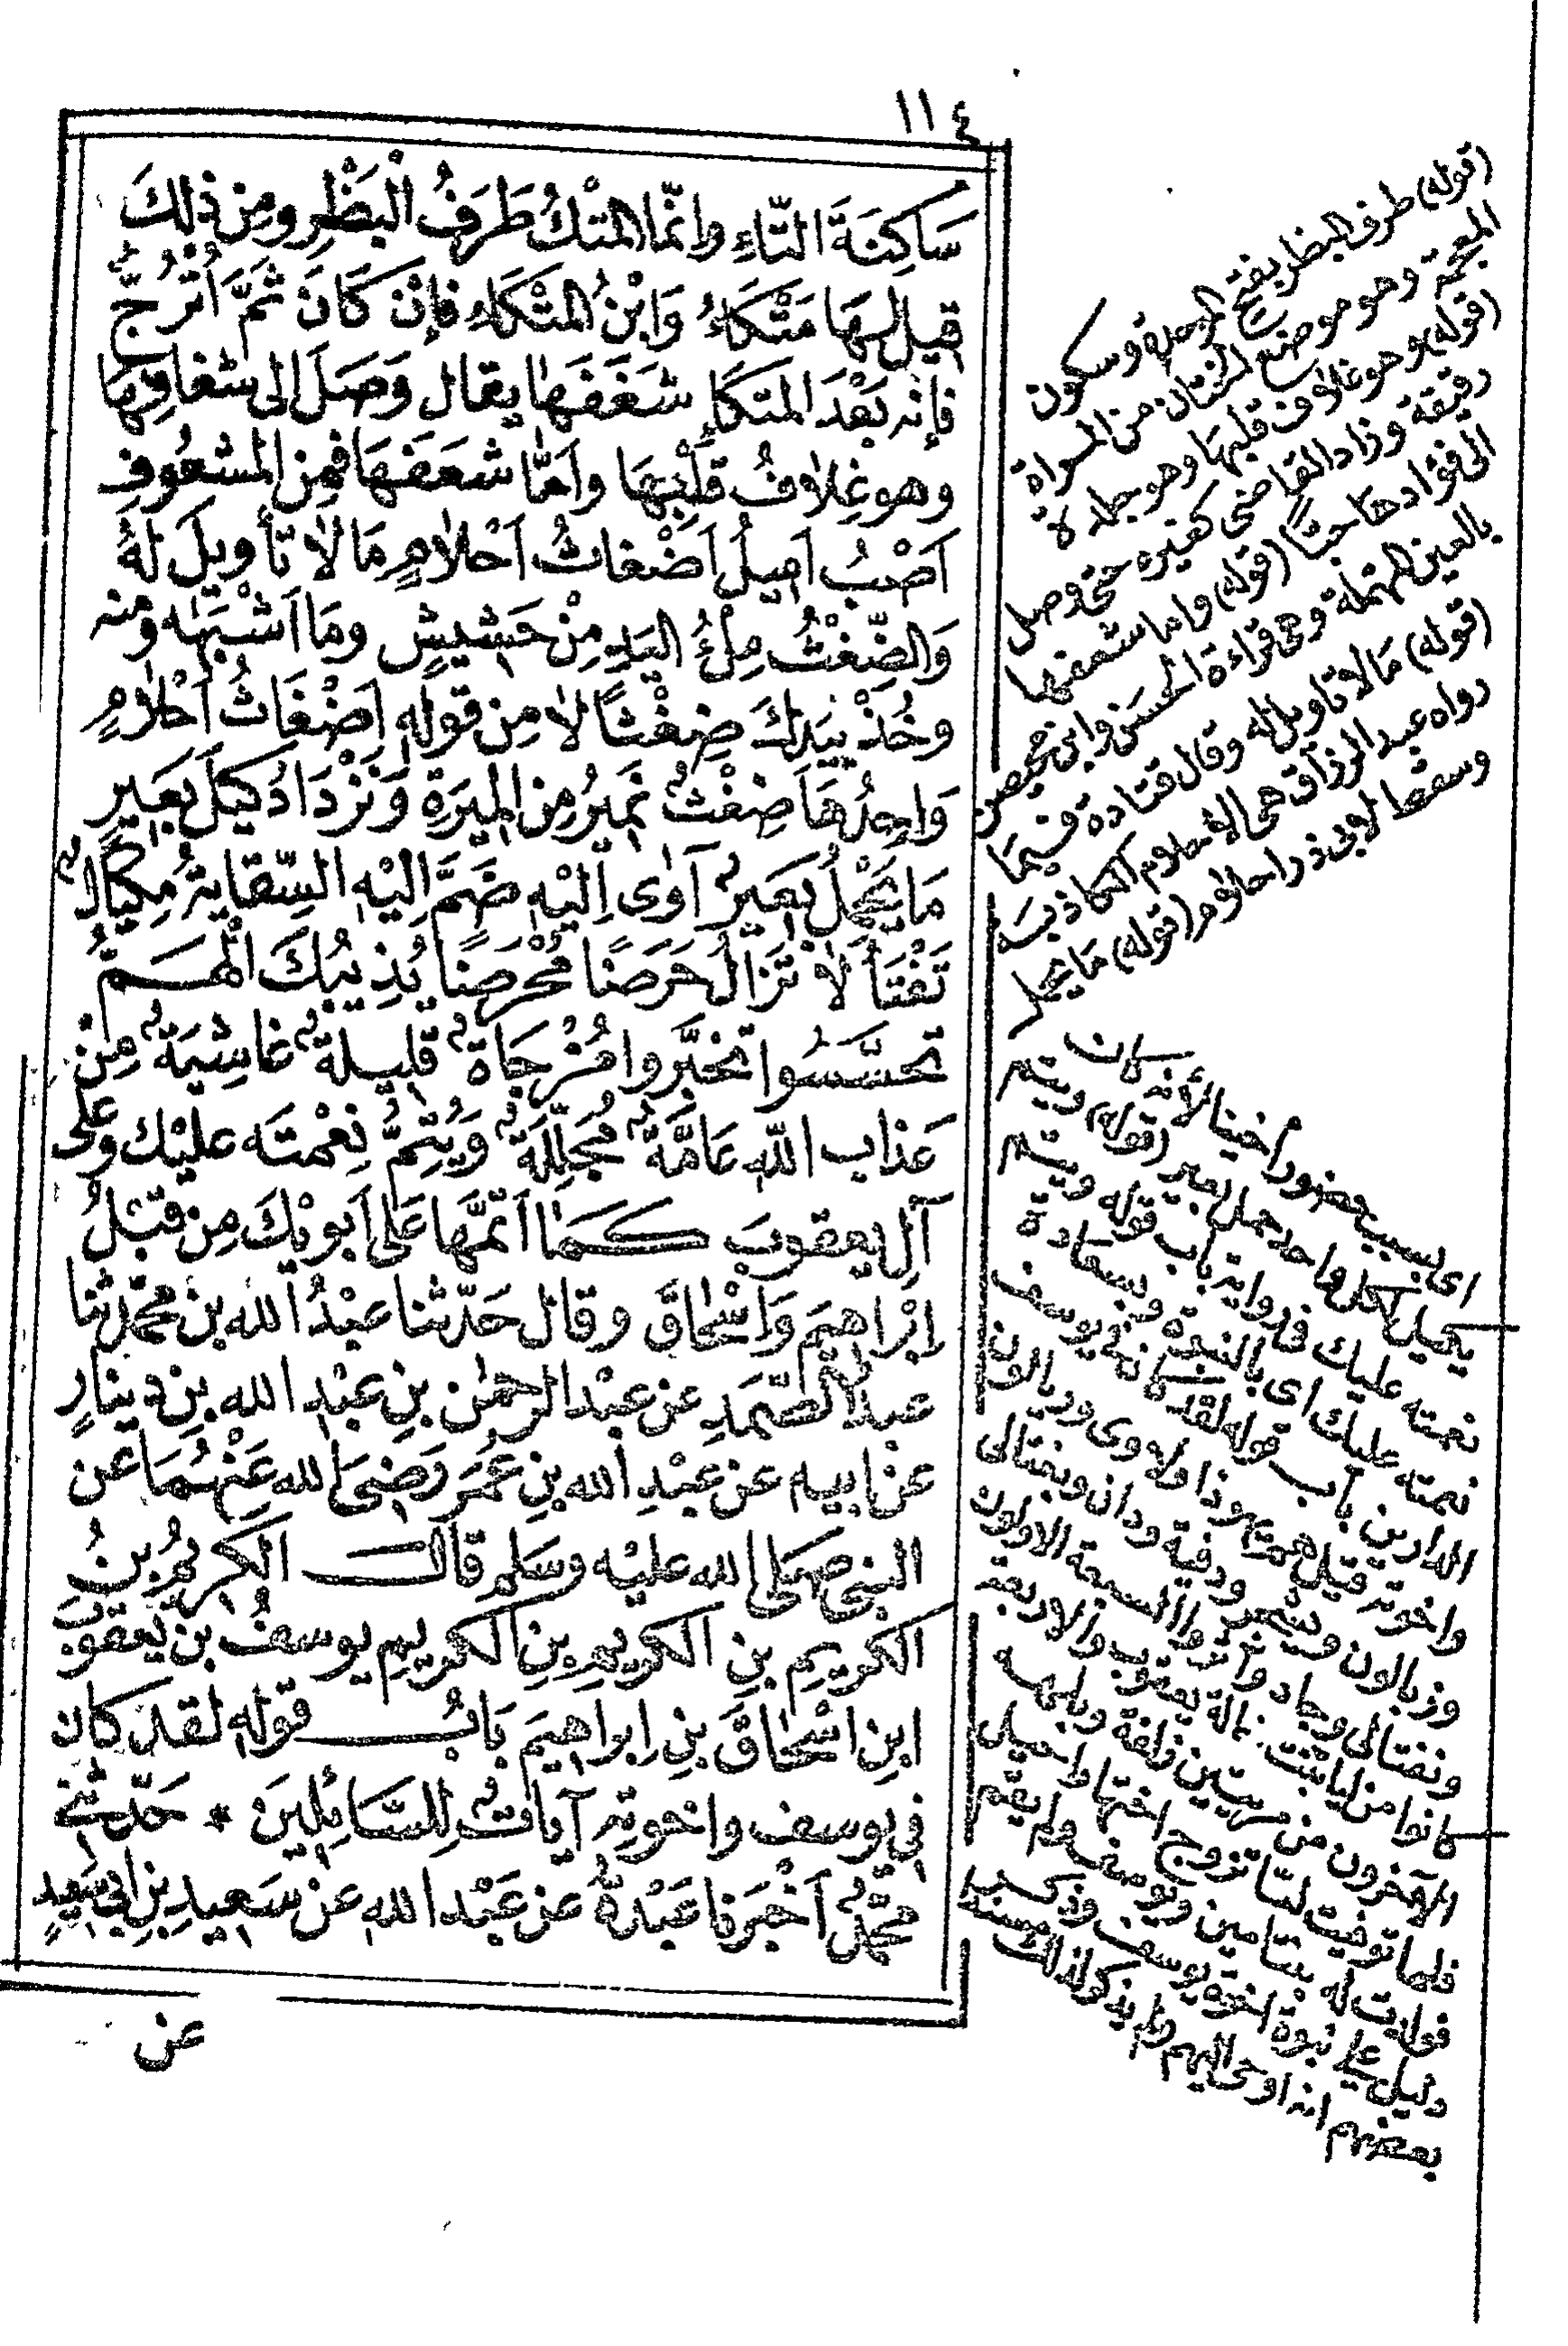 ١١٤
سَاكِنَةَ التّاءِ وانّما المتْكُ طَرَفُ الْبَظْرِ ومِن ذلِكَ
قيل لهَا مَتْكَاءُ وَابْنُ المتْكَاءِ فإنْ كَانَ ثَمَّ اُتْرُجٌّ
فإنّه بَعْدَ المتّكَإِ شغَفَهَا يقال وَصَلَ الى شغافِهَا
وهو غِلافُ قَلْبِهَا وامّا شعَفَهَا فمِن المشعُوفِ
اَصْبُ اَمِيلُ اَضْغاثُ اَحْلامٍ مَا لا تأويلَ لهُ
وَالضِّغْثُ مِلْءُ اليَدِ مِنْ حَشيشٍ ومَا اَشْبَهَه ومنه
وخُذْ بِيَدِكَ ضِغْثًا لا مِن قولِه اَضْغَاثُ اَحْلامٍ
وَاحِدُهَا ضِغْثٌ نَمِيرُ مِن المِيرَةِ وَنَزْدَادُ كيْلَ بَعِيرٍ
مَا يَحْمِلُ بَعيرٌ آوٰى اِلَيْهِ ضَمَّ اِلَيْهِ السِّقايةُ مِكْيَالٌ
تَفْتَأُ لا تَزَالُ حَرَضًا مُحْرَضًا يُذِيبُكَ الْهَمُّ
تحسَّسُوا تخبَّروا مُزْجَاةٌ قليلةٌ غاشِيَةٌ مِنْ
عَذابِ اللهِ عَامَّةٌ مُجَلِّلَةٌ وَيُتِمُّ نِعْمَتَه عليْك وعلى
آلِ يعقوبَ كَمَا اَتَمَّهَا عَلى اَبويْكَ مِن قَبْلُ
اِبْرَاهِيمَ وَاِسْحَاقَ وقال حَدّثنا عبْدُ الله بن محمّدٍ ثنا
عبدُ الصَّمَدِ عن عبْد الرحمٰن بنِ عبْدِ الله بِن دينارٍ
عن ابيه عن عبْدِ الله بنِ عُمَرَ رَضِيَ الله عَنْهُمَا عن
النبي صَلى الله عليْه وسَلم قال الكَرِيمُ بنُ
الكريمِ بنِ الكريمِ بنِ الكريمِ يوسفُ بن يَعقوبَ
ابنِ اسْحاقَ بنِ ابراهيمَ بَابُ قولِه لقد كان
في يوسف واخوتِه آياتٌ لِلسَّائِلِينَ * حَدّثني
محمّدٌ اَخْبَرَنا عَبْدَةُ عن عَبْد الله عن سَعِيدِ بنِ ابي سَعِيدٍ
عن
(قوله) طرف البظر بفتح الموحدة وسكون
المعجمة وهو موضع الختان من المرأة
(قوله) وهو غلاف قلبها وهو جلدة
رقيقة وزاد القاضى كغيره حتى وصل
الى فؤادها حبًّا (قوله) واما شعفها
بالعين المهملة وهى قراءة الحسن وابن محيصن
(قوله) مَا لا تاويل له وقال قتادة فيما
رواه عبد الرزاق هى الاحلام الكاذبة
وسقط لابى ذر احلام (قوله) مَا يحمل
اى بسبب حضور اخينا لأنه كان
يكيل لكل واحد حمل بعير (قوله) ويتم
نعمته عليك فى رواية باب قوله ويتم
نعمته عليك اى بالنبوة وبسعادة
الدارين باب قوله لقد كان فى يوسف
واخوته قيل هم يهوذا ولاوى
كانوا من ليا بنت خالة يعقوب والاربعة
الآخرون من سريتين زلفة وبلهه
فلما توفيت ليّا تزوج اختها راحيل
فولدت له بنيامين ويوسف ولم يقم
دليل على نبوة اخوة يوسف وذكر
بعضهم انه اوحى اليهم ولم يذكر لذلك مستندا